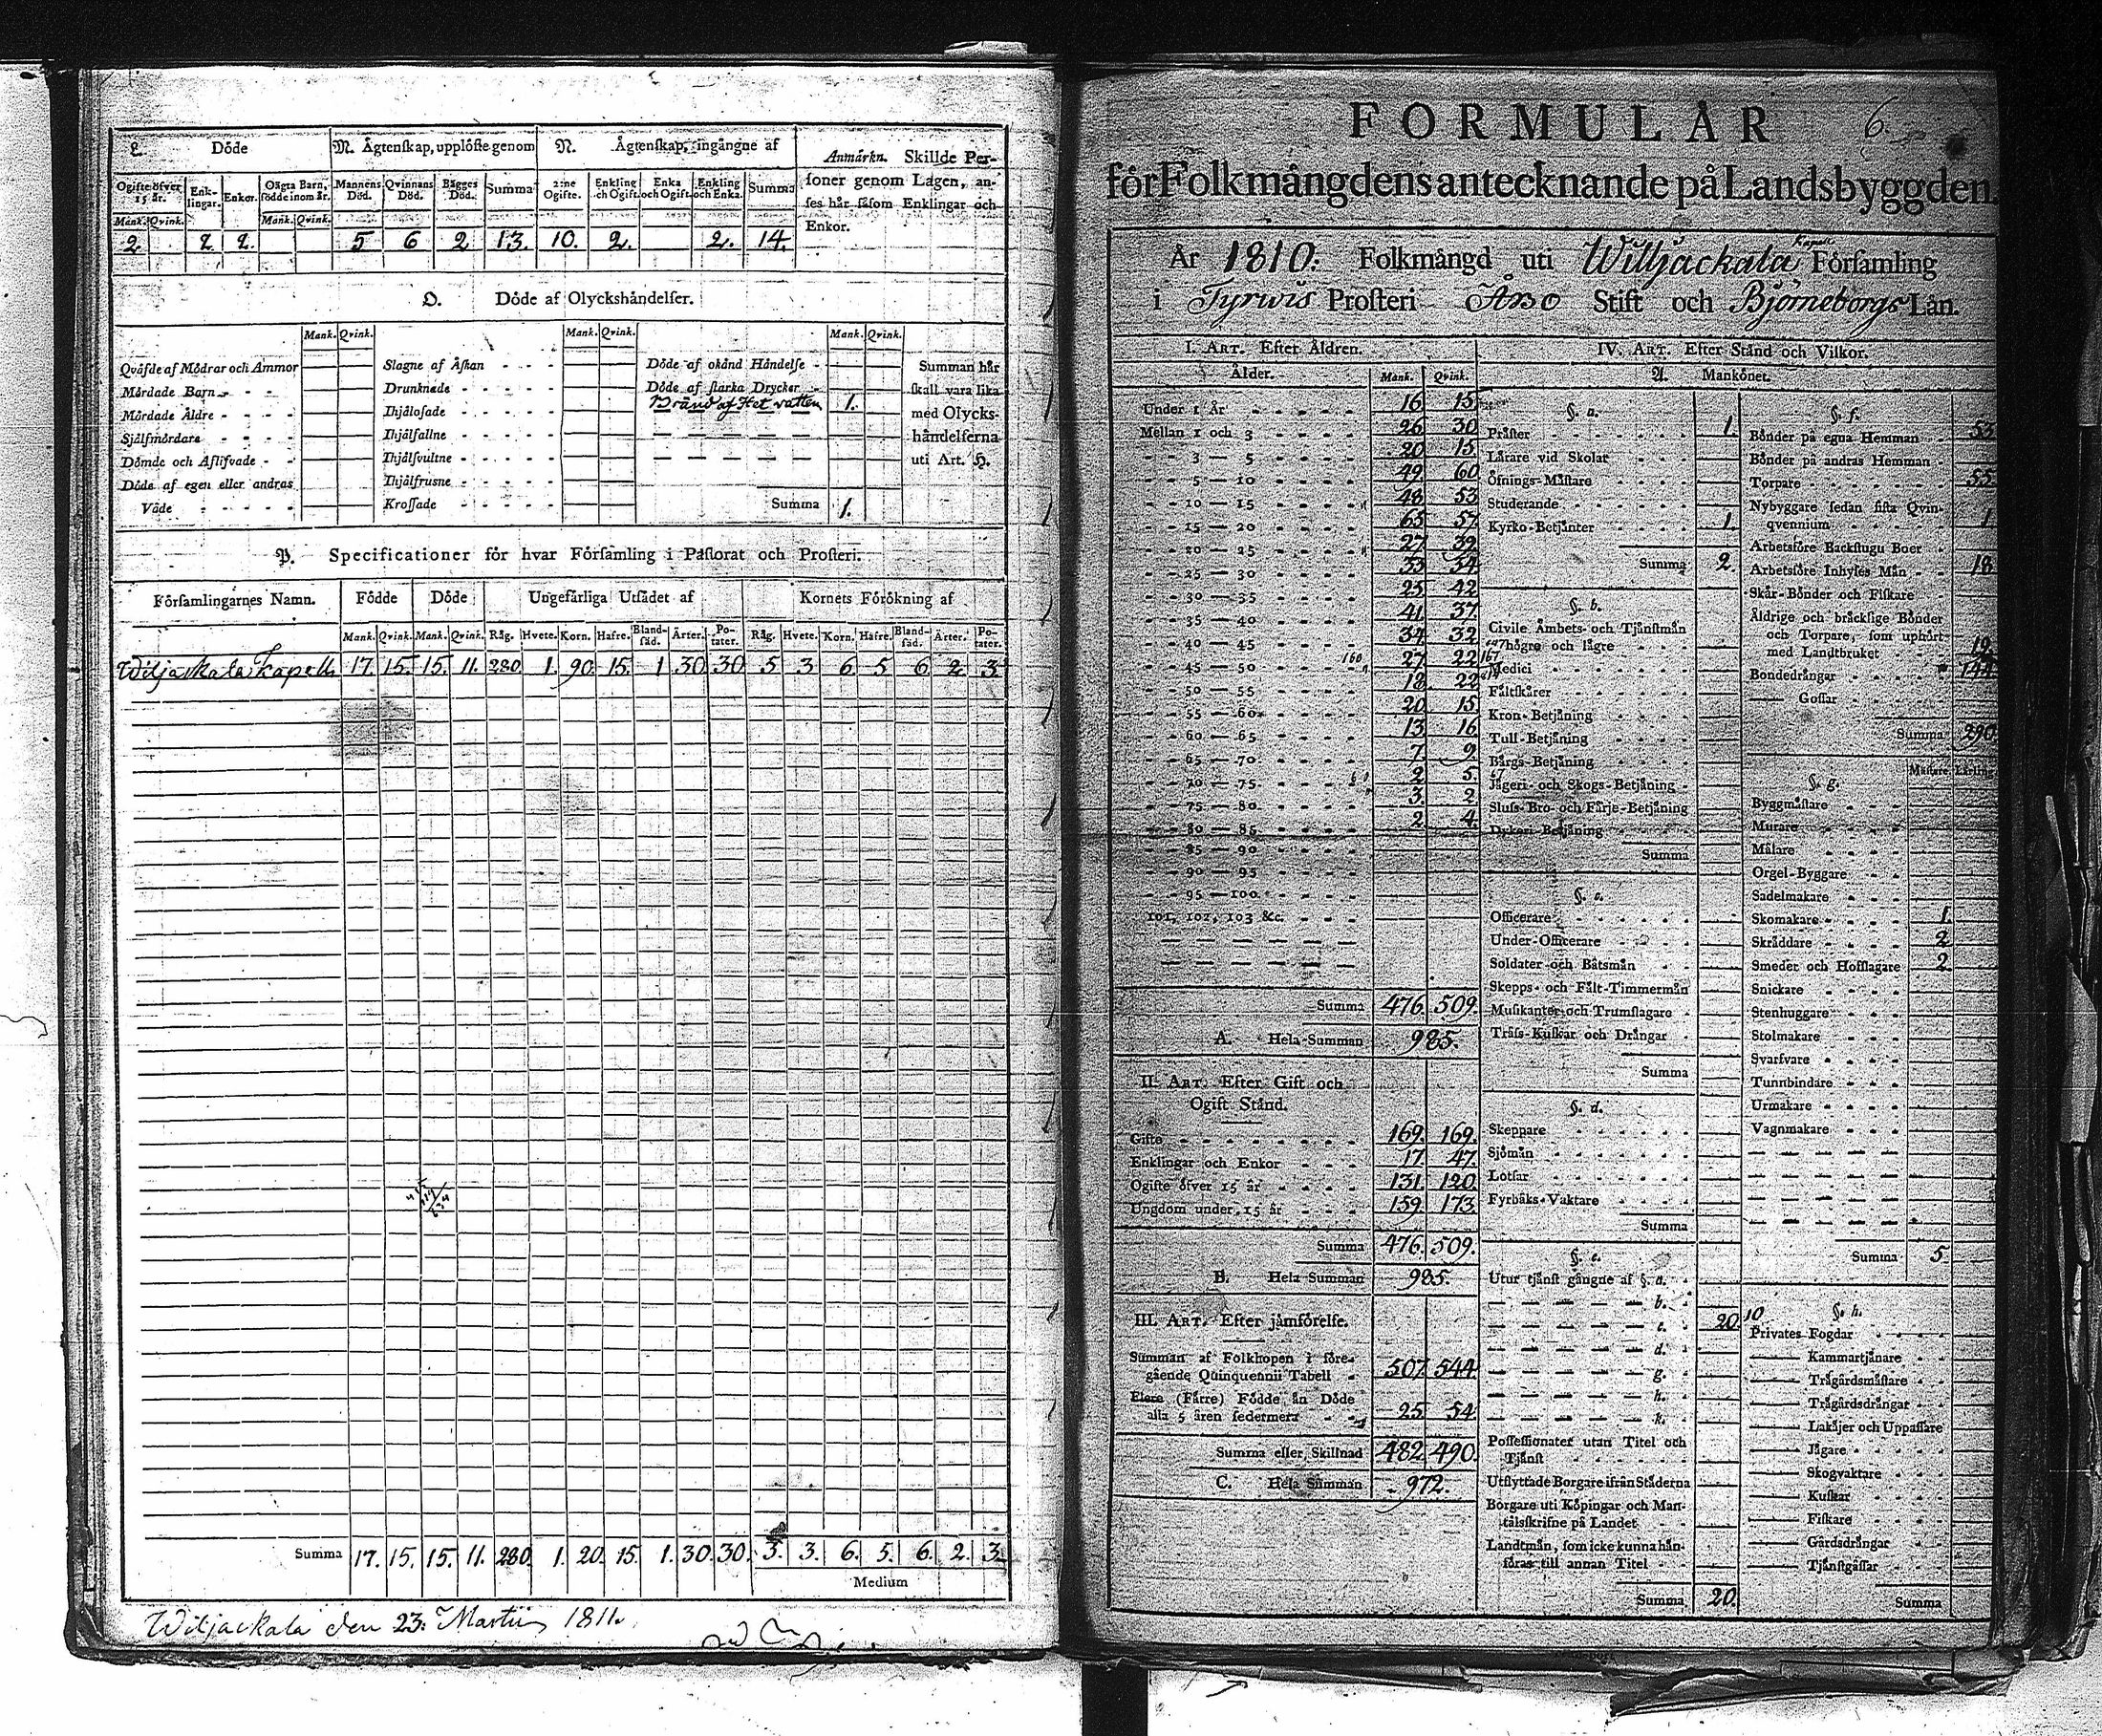 L. Döde
M. Ägtenskap, upplöste genom
N. Ägtenskap, ingångne af
Anmärkn. Skillde Per-
soner genom Lagen, an-
ses här såsom Enklingar och
Enkor.
Ogifte öfver 15 år. Enk-lingar. Enkor. Oägta Barn, födde inom år. Mannens Död. Qvinnans Död. Bägges Död. Summa 2:ne Ogifte. Enkling och Ogift. Enka och Ogift. Enkling och Enka. Summa
Mank. Qvink. Mank. Qvink.
2. 2. 2. 5 6 2 13. 10. 2. 2. 14.
O. Döde af Olyckshändelser.
Mank. Qvink. Mank. Qvink. Mank. Qvink.
Qväfde af Mödrar och Ammor Slagne af Åskan Döde af okänd Händelse Summan här
Mördade Barn Drunknade Döde af starka Drycker skall vara lika
Mördade Äldre Ihjälosade Bränd af Het vatten 1. med Olycks-
Självmördare Ihjälfallne händelserna
Dömde och Aflifvade Ihjälsvultne uti Art. H.
Döde af egen eller andras Ihjälfrusne
Våde Krossade Summa 1.
P. Specificationer för hvar Församling i Pastorat och Prosteri.
Församlingarnes Namn. Födde Döde Ungefärliga Utsädet af Kornets Förökning af
Mank. Qvink. Mank. Qvink. Råg. Hvete. Korn. Hafre. Bland-säd. Ärter. Po-tater. Råg. Hvete. Korn. Hafre. Bland-säd. Ärter. Po-tater.
Wiljackala Kapell 17. 15. 15. 11. 280. 1. 90. 15. 1 30. 30 5 3 6 5 6 2 3
Summa 17. 15. 15. 11. 280. 1. 20. 15. 1. 30. 30. 5. 3. 6. 5. 6. 2. 3.
Medium
Wiljackala den 23: Martii 1811.
FORMULÄR 6.
för Folkmängdens antecknande på Landsbyggden.
År 1810. Folkmängd uti Williackala Kapell Församling
i Tyrwis Prosteri Åbo Stift och Björneborgs Län.
I. Art. Efter Åldren.
Ålder. Mank. Qvink.
Under 1 År 16 15
Mellan 1 och 3 26 30
3 — 5 20 15
5 — 10 49 60
10 — 15 48 53
15 — 20 65 57
20 — 25 27 39
25 — 30 33 34
30 — 35 25 42
35 — 40 41 37
40 — 45 34 32
45 — 50 27 22
50 — 55 18 22
55 — 60 20 15
60 — 65 13 16
65 — 70 7 9
70 — 75 2 5
75 — 80 3 2
80 — 85 2 4
85 — 90
90 — 95
95 — 100
101, 102, 103 &c.
Summa 476. 509.
A. Hela Summan 985.
II. Art. Efter Gift och
Ogift Stånd.
Gifte 169. 169.
Enklingar och Enkor 17. 47.
Ogifte öfver 15 år 131. 120
Ungdom under 15 år 159 173
Summa 476. 509.
B. Hela Summan 985.
III. Art. Efter jämförelse.
Summan af Folkhopen i före-
gående Quinquennii Tabell 507 544
Flere (Färre) Födde än Döde
alla 5 åren sedermera 25 54
Summa eller Skillnad 482 490.
C. Hela Summan 972.
IV. Art. Efter Stånd och Vilkor.
A. Mankönet.
§. a.
Präster 1.
Lärare vid Skolar
Öfnings-Mästare
Studerande
Kyrko-Betjänter 1.
Summa 2.
§. b.
Civile Ämbets- och Tjänstmän
högre och lägre
Medici
Fältskärer
Kron-Betjäning
Tull-Betjäning
Bärgs-Betjäning
Jägeri- och Skogs-Betjäning
Sluss- Bro- och Färje-Betjäning
Dykeri-Betjäning
Summa
§. c.
Officerare
Under-Officerare
Soldater och Båtsmän
Skepps- och Fält-Timmermän
Musikanter och Trumslagare
Träss-Kuskar och Drängar
Summa
§. d.
Skeppare
Sjömän
Lotsar
Fyrbåks-Vaktare
Summa
§. e.
Utur tjänst gångne af §. a.
b.
c. 20.
d.
g.
h.
k.
Possessionater utan Titel och
Tjänst
Utflyttade Borgare ifrån Städerna
Borgare uti Köpingar och Man-
talsskrifne på Landet
Landtmän, som icke kunna hän-
föras till annan Titel
Summa 20.
§. f.
Bönder på egna Hemman 53
Bönder på andras Hemman
Torpare 55
Nybyggare sedan sista Qvin-
qvennium 1
Arbetsföre Backstugu Boer
Arbetsföre Inhyses Män 18
Skär-Bönder och Fiskare
Äldrige och bräcklige Bönder
och Torpare, som uphört
med Landtbruket 19
Bondedrängar 144
Gossar
Summa 290
§. g. Mästare. Lärling
Byggmästare
Murare
Målare
Orgel-Byggare
Sadelmakare
Skomakare 1.
Skräddare 2
Smeder och Hofslagare 2.
Snickare
Stenhuggare
Stolmakare
Svarfvare
Tunnbindare
Urmakare
Vagnmakare
Summa 5
10 §. h.
Privates Fogdar
Kammartjänare
Trägårdsmästare
Trägårdsdrängar
Lakäjer och Uppassare
Jägare
Skogvaktare
Kuskar
Fiskare
Gårdsdrängar
Tjänstgåssar
Summa